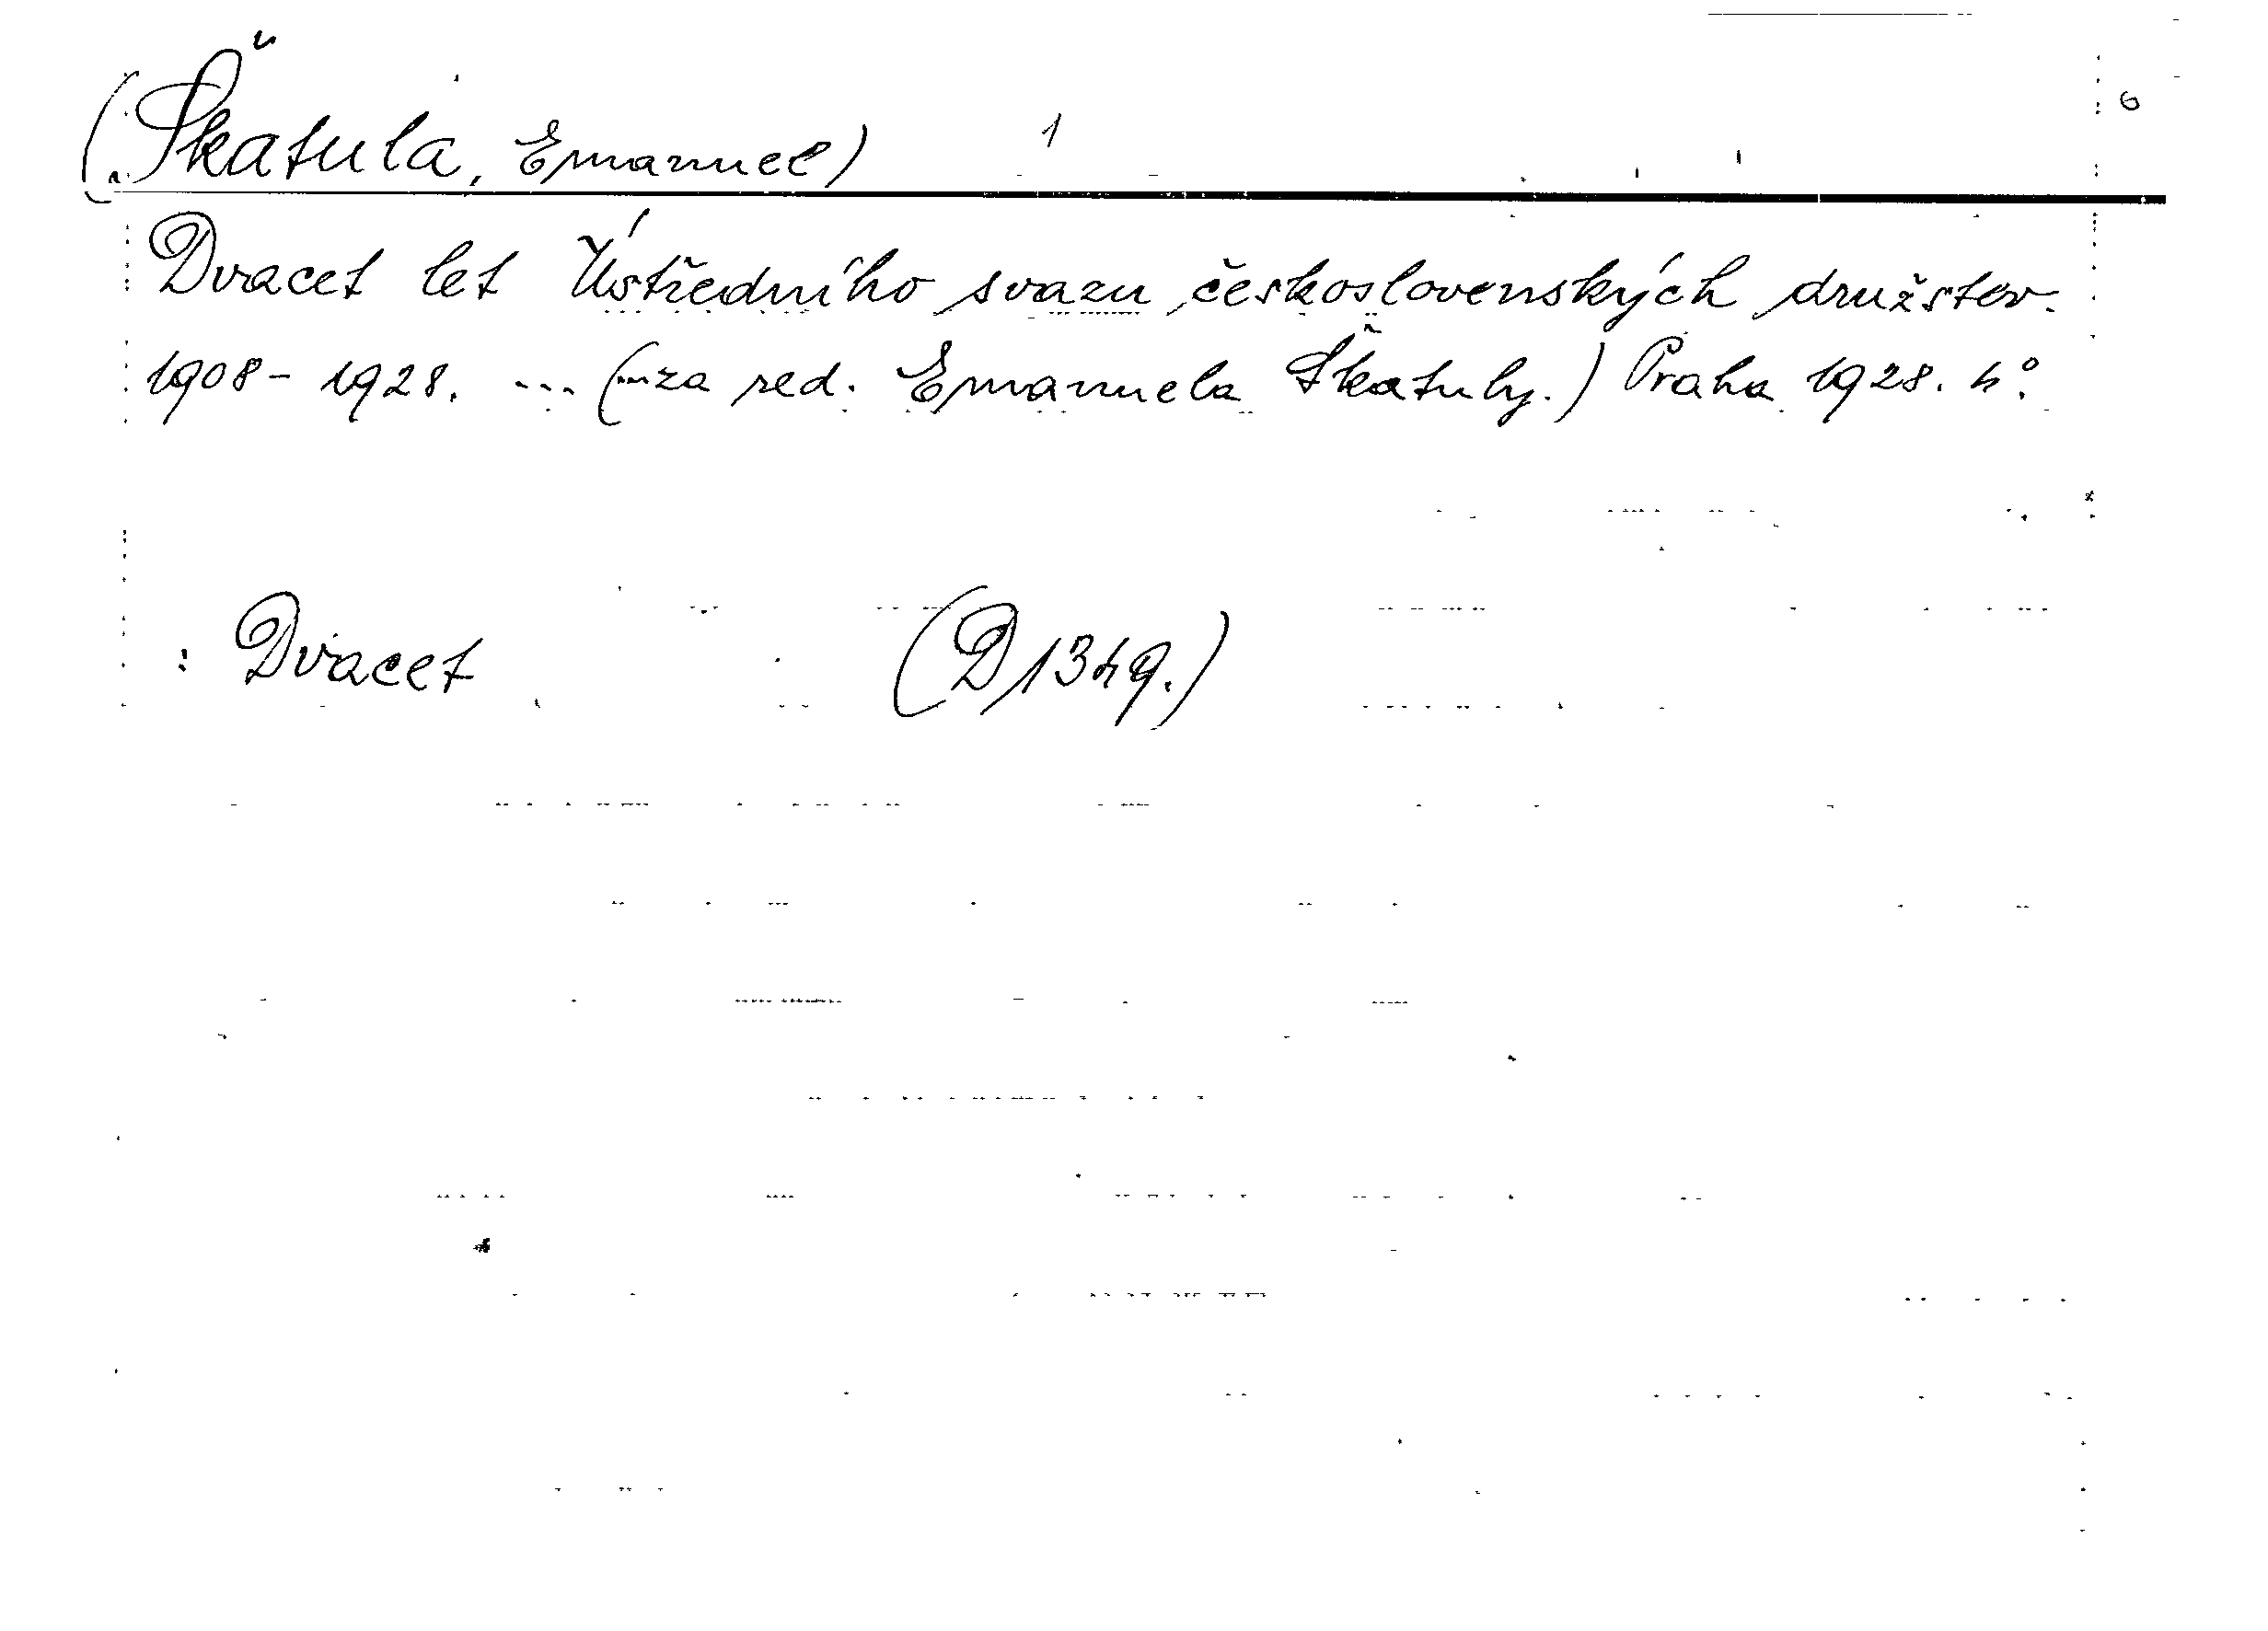 (Škatula, Emanuel) 1 6
Dvacet let Ústředního svazu československých družstev.
1908 - 1928. ... (...za red. Emanuela Škatuly.) Praha 1928. 4°.
: Dvacet (D1349.)